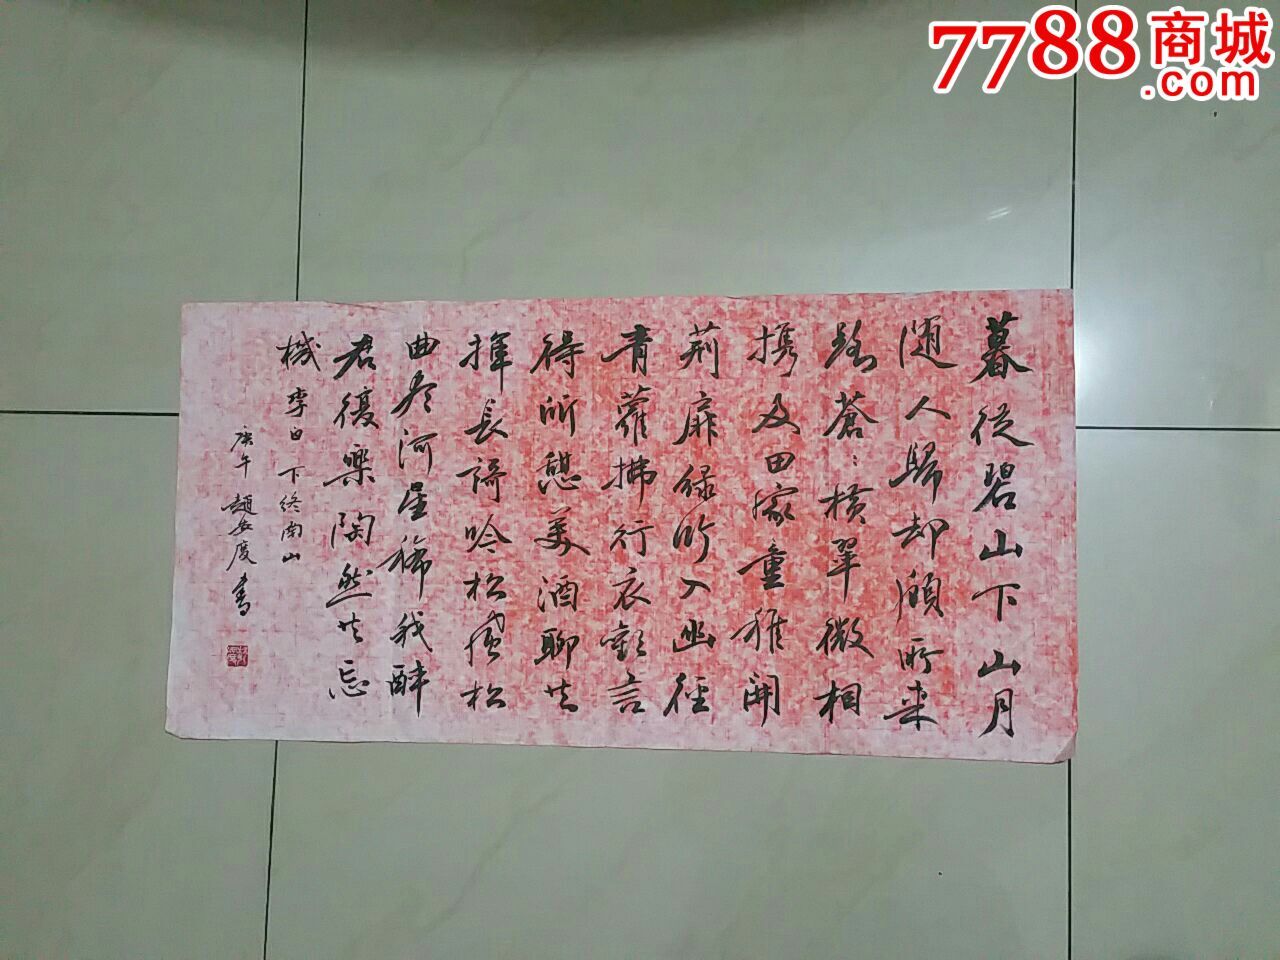 暮從碧山下山月
随人歸却顧所来
路蒼々橫翠微相
携及田家童稚開
荊扉绿竹入幽徑
青蘿拂行衣歡言
得所憩美酒聊共
揮長謌吟松風松
曲尽河星稀我醉
君復樂陶然共忘
機 李白 下终南山
庚午 趙 度書
7788商城
.com